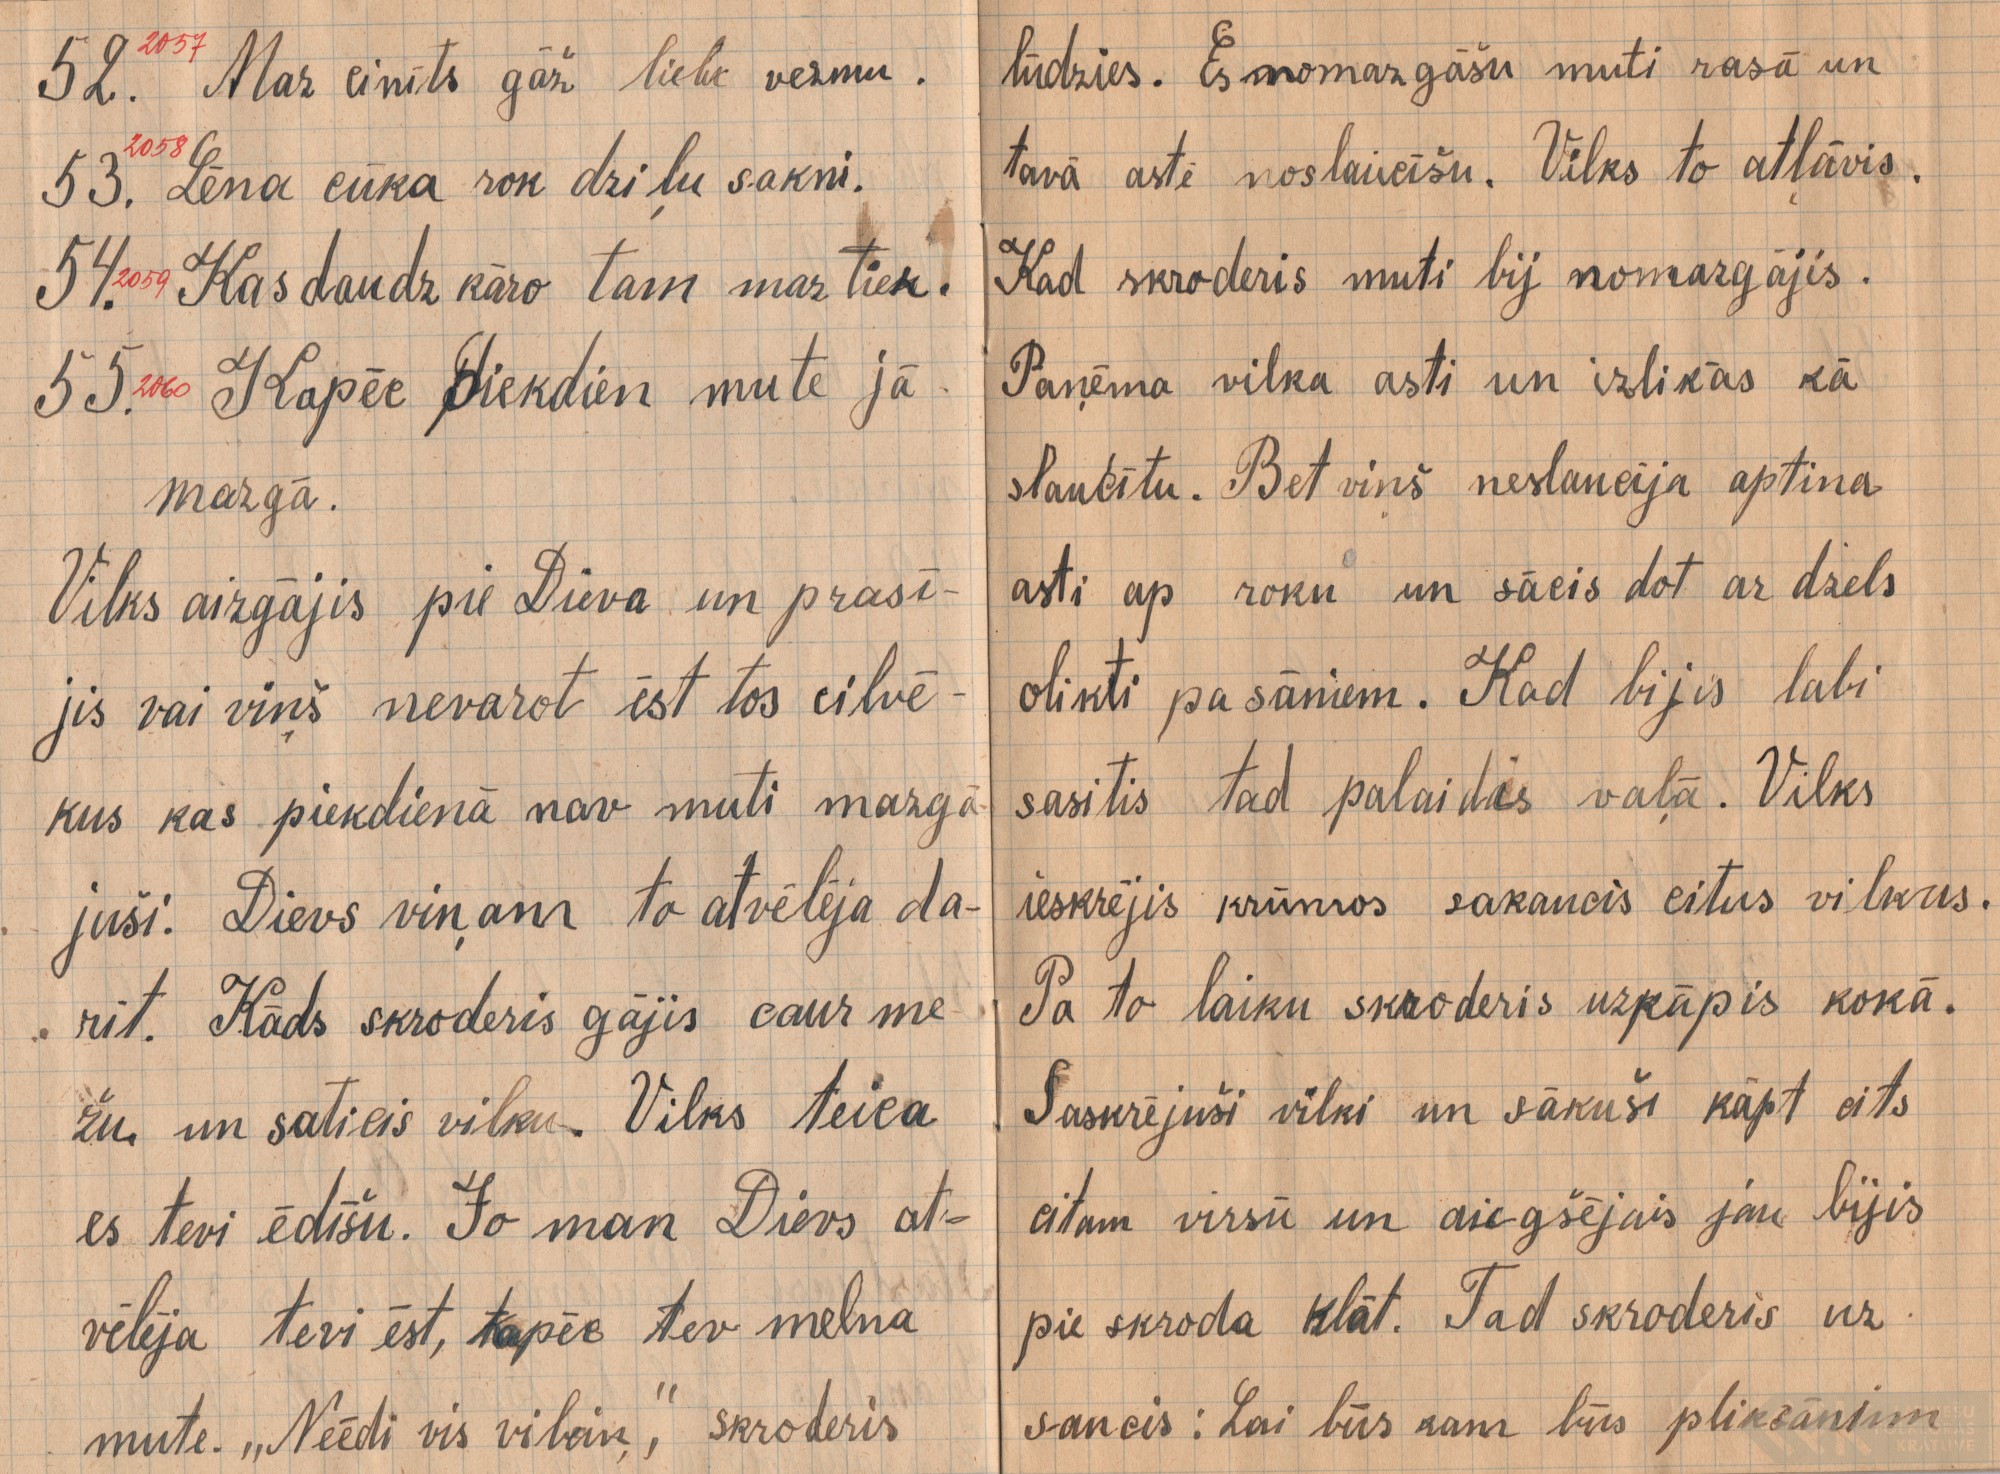 52. 2057 Maz cinīts gāž lielu vezmu.
53. 2058 Lēna cūka rok dziļu sakni.
54. 2059 Kas daudz kāro tam maz tiek.
55. 2060 Kapēc piekdien mute jā-
mazgā.
Vilks aizgājis pie Dieva un prasī-
jis vai viņš nevarot ēst tos cilvē-
kus kas piekdienā nav muti mazgā-
juši. Dievs viņam to atvēlēja da-
rīt. Kāds skroderis gājis caur me-
žu un saticis vilku. Vilks teica
es tevi ēdīšu. Jo man Dievs at-
vēlēja tevi ēst, tapēc tev melna
mute. „Neēdi vis vilciņ,” skroderis
lūdzies. Es nomazgāšu muti rasā un
tavā astē noslaucīšu. Vilks to atļāvis.
Kad skroderis muti bij nomazgājis.
Paņēma vilka asti un izlikās kā
slaucītu. Bet viņš neslaucīja aptina
asti ap roku un sācis dot ar dzels
olikti pa sāniem. Kad bijis labi
sasitis tad palaidis vaļā. Vilks
ieskrējis krūmos sakaucis citus vilkus.
Pa to laiku skroderis uzkāpis kokā.
Saskrējuši vilki un sākuši kāpt cits
citam virsū un aicgšējais jau bijis
pie skroda klāt. Tad skroderis uz
saucis: Lai būs kam būs plikšāniem